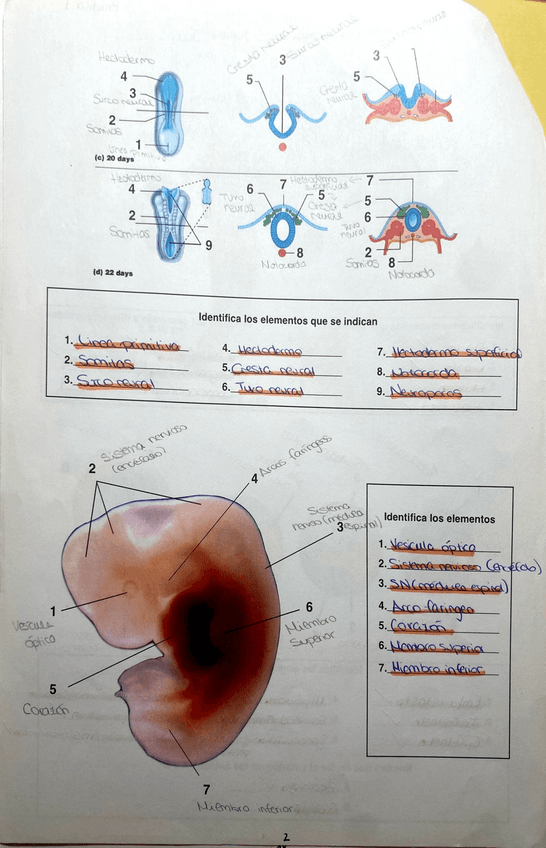 Hectodermo
Cresta neural
Surco neural
3
3
4
5
5
3
Cresta
neural
Surco neural
2
Somitos
1
Linea primitiva
(c) 20 days
Hectodermo
4
6
7
Hectodermo
superficial
7
Tuvo
neural
5
Cresta
neural
5
2
6
Somitos
9
Tuvo
neural
2
8
8
Notocorda
Somitos
Notocorda
(d) 22 days
Identifica los elementos que se indican
1. Linea primitiva
4. Hectodermo
7. Hectodermo superficial
2. Somitos
5. Cresta neural
8. Notocorda
3. Surco neural
6. Tuvo neural
9. Neuroporos
2
Sistema nervioso
(encéfalo)
4
Arcos faríngeos
Sistema
nervioso (médula
espinal)
3
Identifica los elementos
1. Vesícula óptica
2. Sistema nervioso (encéfalo)
3. SN (médula espinal)
4. Arco faríngeo
5. Corazón
6. Miembro superior
7. Miembro inferior
1
Vesícula
óptica
6
Miembro
Superior
5
Corazón
7
Miembro inferior
2